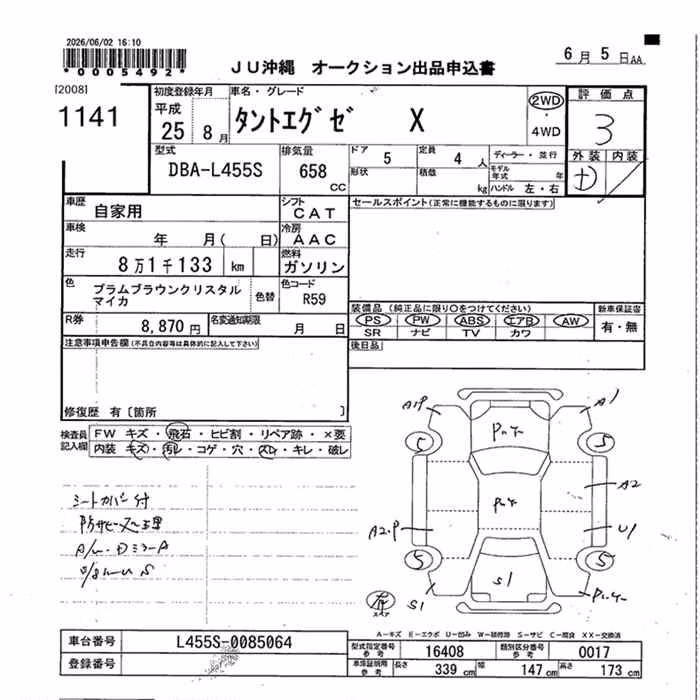 2026/06/02 16:10
*0005492*
JU沖縄 オークション出品申込書
6月 5日AA
[2008]
1141
初度登録年月
平成
25 8月
車名・グレード
タントエグゼ X
2WD
4WD
評価点
3
外装 内装
D
型式
DBA-L455S
排気量
658 CC
ドア 5
形状
定員 4 人
積載 kg
ディーラー・並行
モデル年式 年
ハンドル 左・右
車歴
自家用
シフト
CAT
セールスポイント(正常に機能するものに限ります)
車検
年 月( 日)
冷房
AAC
走行
8万1千133 km
燃料
ガソリン
色
プラムブラウンクリスタル
マイカ
色替
色コード
R59
装備品 (純正品に限り○をつけてください)
PS PW ABS エアB AW
SR ナビ TV カワ
新車保証書
有・無
R券
8,870円
名変通知期限
月 日
後日品
注意事項申告欄(不具合内容等は具体的に記入して下さい)
修復歴 有〔箇所 〕
検査員
記入欄
FW キズ・飛石・ヒビ割・リペア跡・×要
内装・キズ・汚レ・コゲ・穴・スレ・キレ・破レ
シートカバー付
A1P
A1
5
5
A2
A2.P
U1
5
5
S1
S1
有
A-キズ E-エクボ U-凹み W-補修跡 S-サビ C-腐食 XX-交換済
車台番号
L455S-0085064
登録番号
型式指定番号
参考
16408
類別区分番号
参考
0017
車庫証明用
参考
長さ 339 cm
幅 147 cm
高さ 173 cm